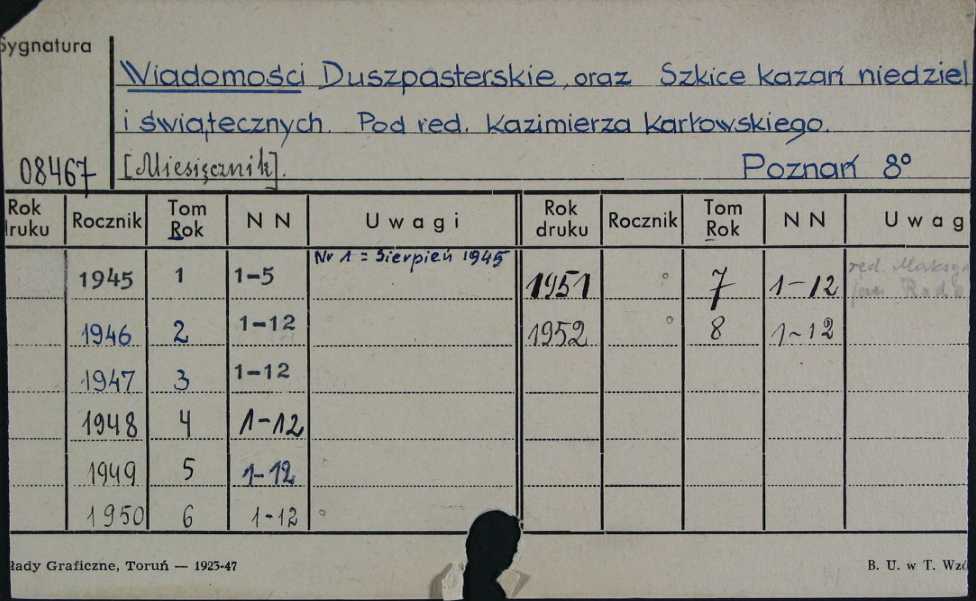 Sygnatura
Wiadomości Duszpasterskie, oraz Szkice kazań niedziel
i świątecznych. Pod red. Kazimierza Karłowskiego.
08467 [Miesięcznik]. Poznań 8°
Rok druku Rocznik Tom Rok N N Uwagi Rok druku Rocznik Tom Rok N N Uwag
1945 1 1-5 Nr 1 = Sierpień 1945 1951 7 1-12 red.
1946 2 1-12 1952 8 1-12
1947 3 1-12
1948 4 1-12
1949 5 1-12
1950 6 1-12
łady Graficzne, Toruń — 1923-47 B. U. w T. Wzó